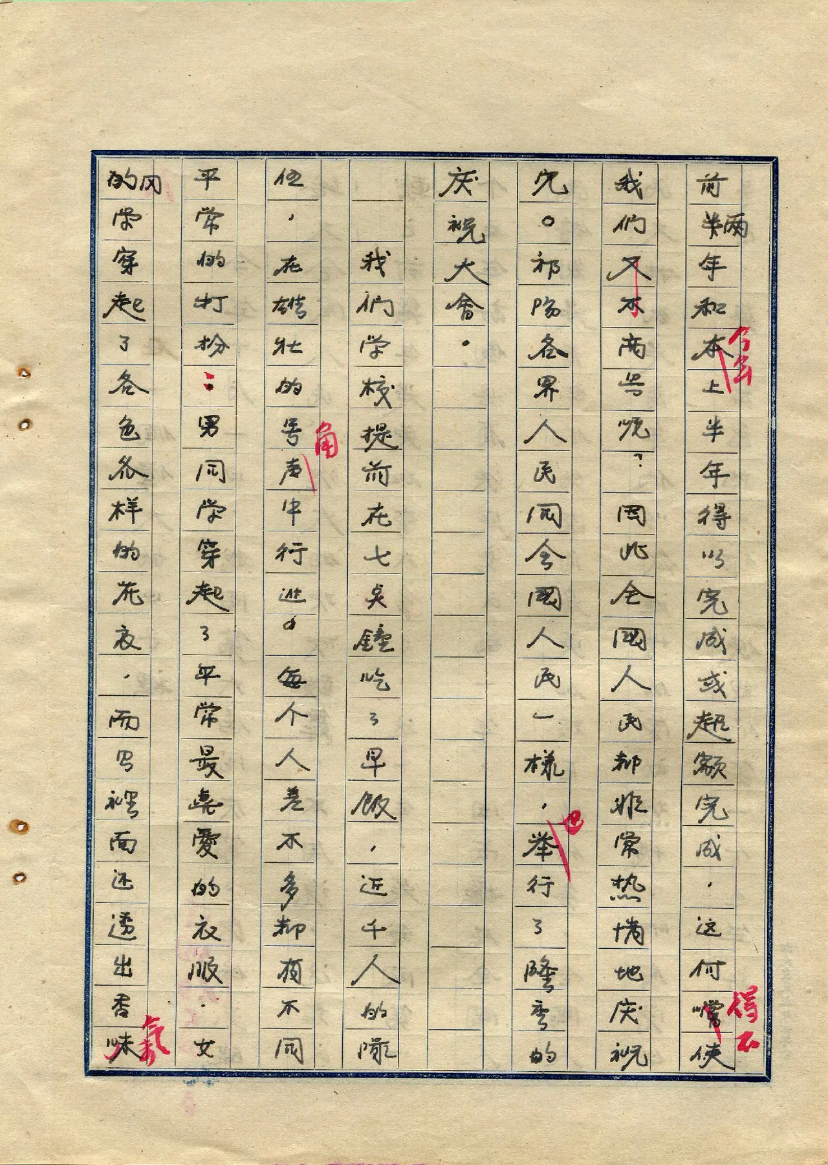 前两年和本上半年得以完成或起额完成，这何嚐使
我们又不商号悦？因此全國人民都非常热情地庆祝
完。祁阳各界人民同全國人民一樣，举行了隆重的
庆祝大會。
我们学校提前在七点鐘吃了早飯，近千人的隊
伍，在雄壮的号声中行进。每个人差不多都有不同
平常的打扮：男同学穿起了平常最喜愛的衣服，女
的同学穿起了各色各样的花衣，而且裡面还透出香味
今年
得不
也
角
氣